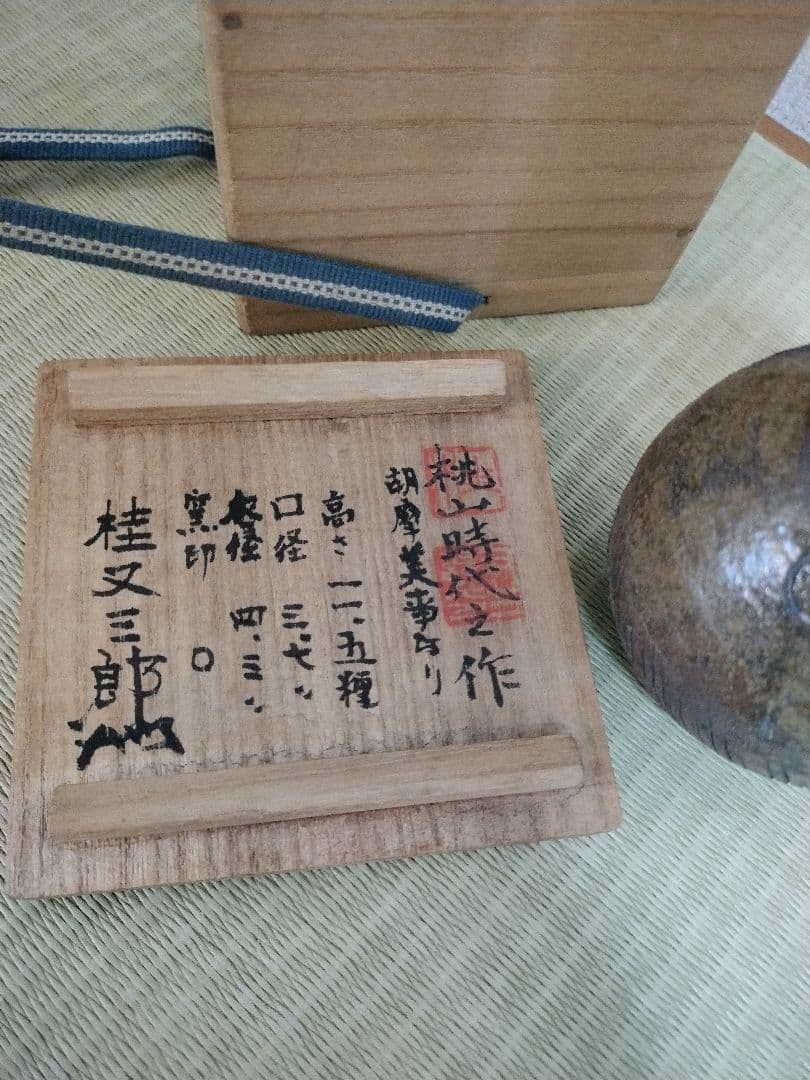 桃山時代之作
胡摩美事なり
高さ 一一、五糎
口径 三、七〃
径 四、三〃
窯印 〇
桂又三郎